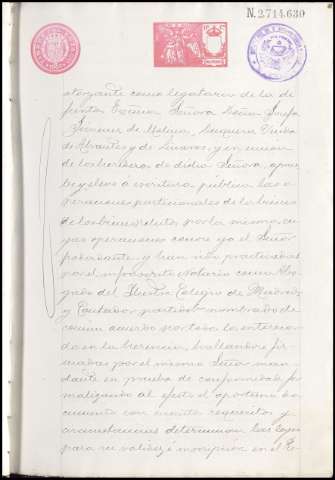 N.2714.630
otorgante como legataria de la di-
funta Excma Señora Doña Josefa
Jimenez de Molina, Duquesa Viuda
de Abrantes y de Linares, y en union
de los herederos de dicha Señora, aprue-
be y eleve á escritura pública las o-
peraciones particionales de los bienes
de los bienes relictos por la misma, cu-
yas operaciones conoce ya el Señor
poderdante y han sido practicadas
por el infrascrito Notario como Abo-
gado del Ilustre Colegio de Madrid
y Contador partidor nombrado de
comun acuerdo por todos los interesa-
dos en la herencia, hallandose fir-
madas por el mismo Señor man-
dante en prueba de conformidad, for-
malizando al efecto el oportuno do-
cumento con cuantos requisitos y
circunstancias determinan las leyes
para su validez é inscripcion en el Re-